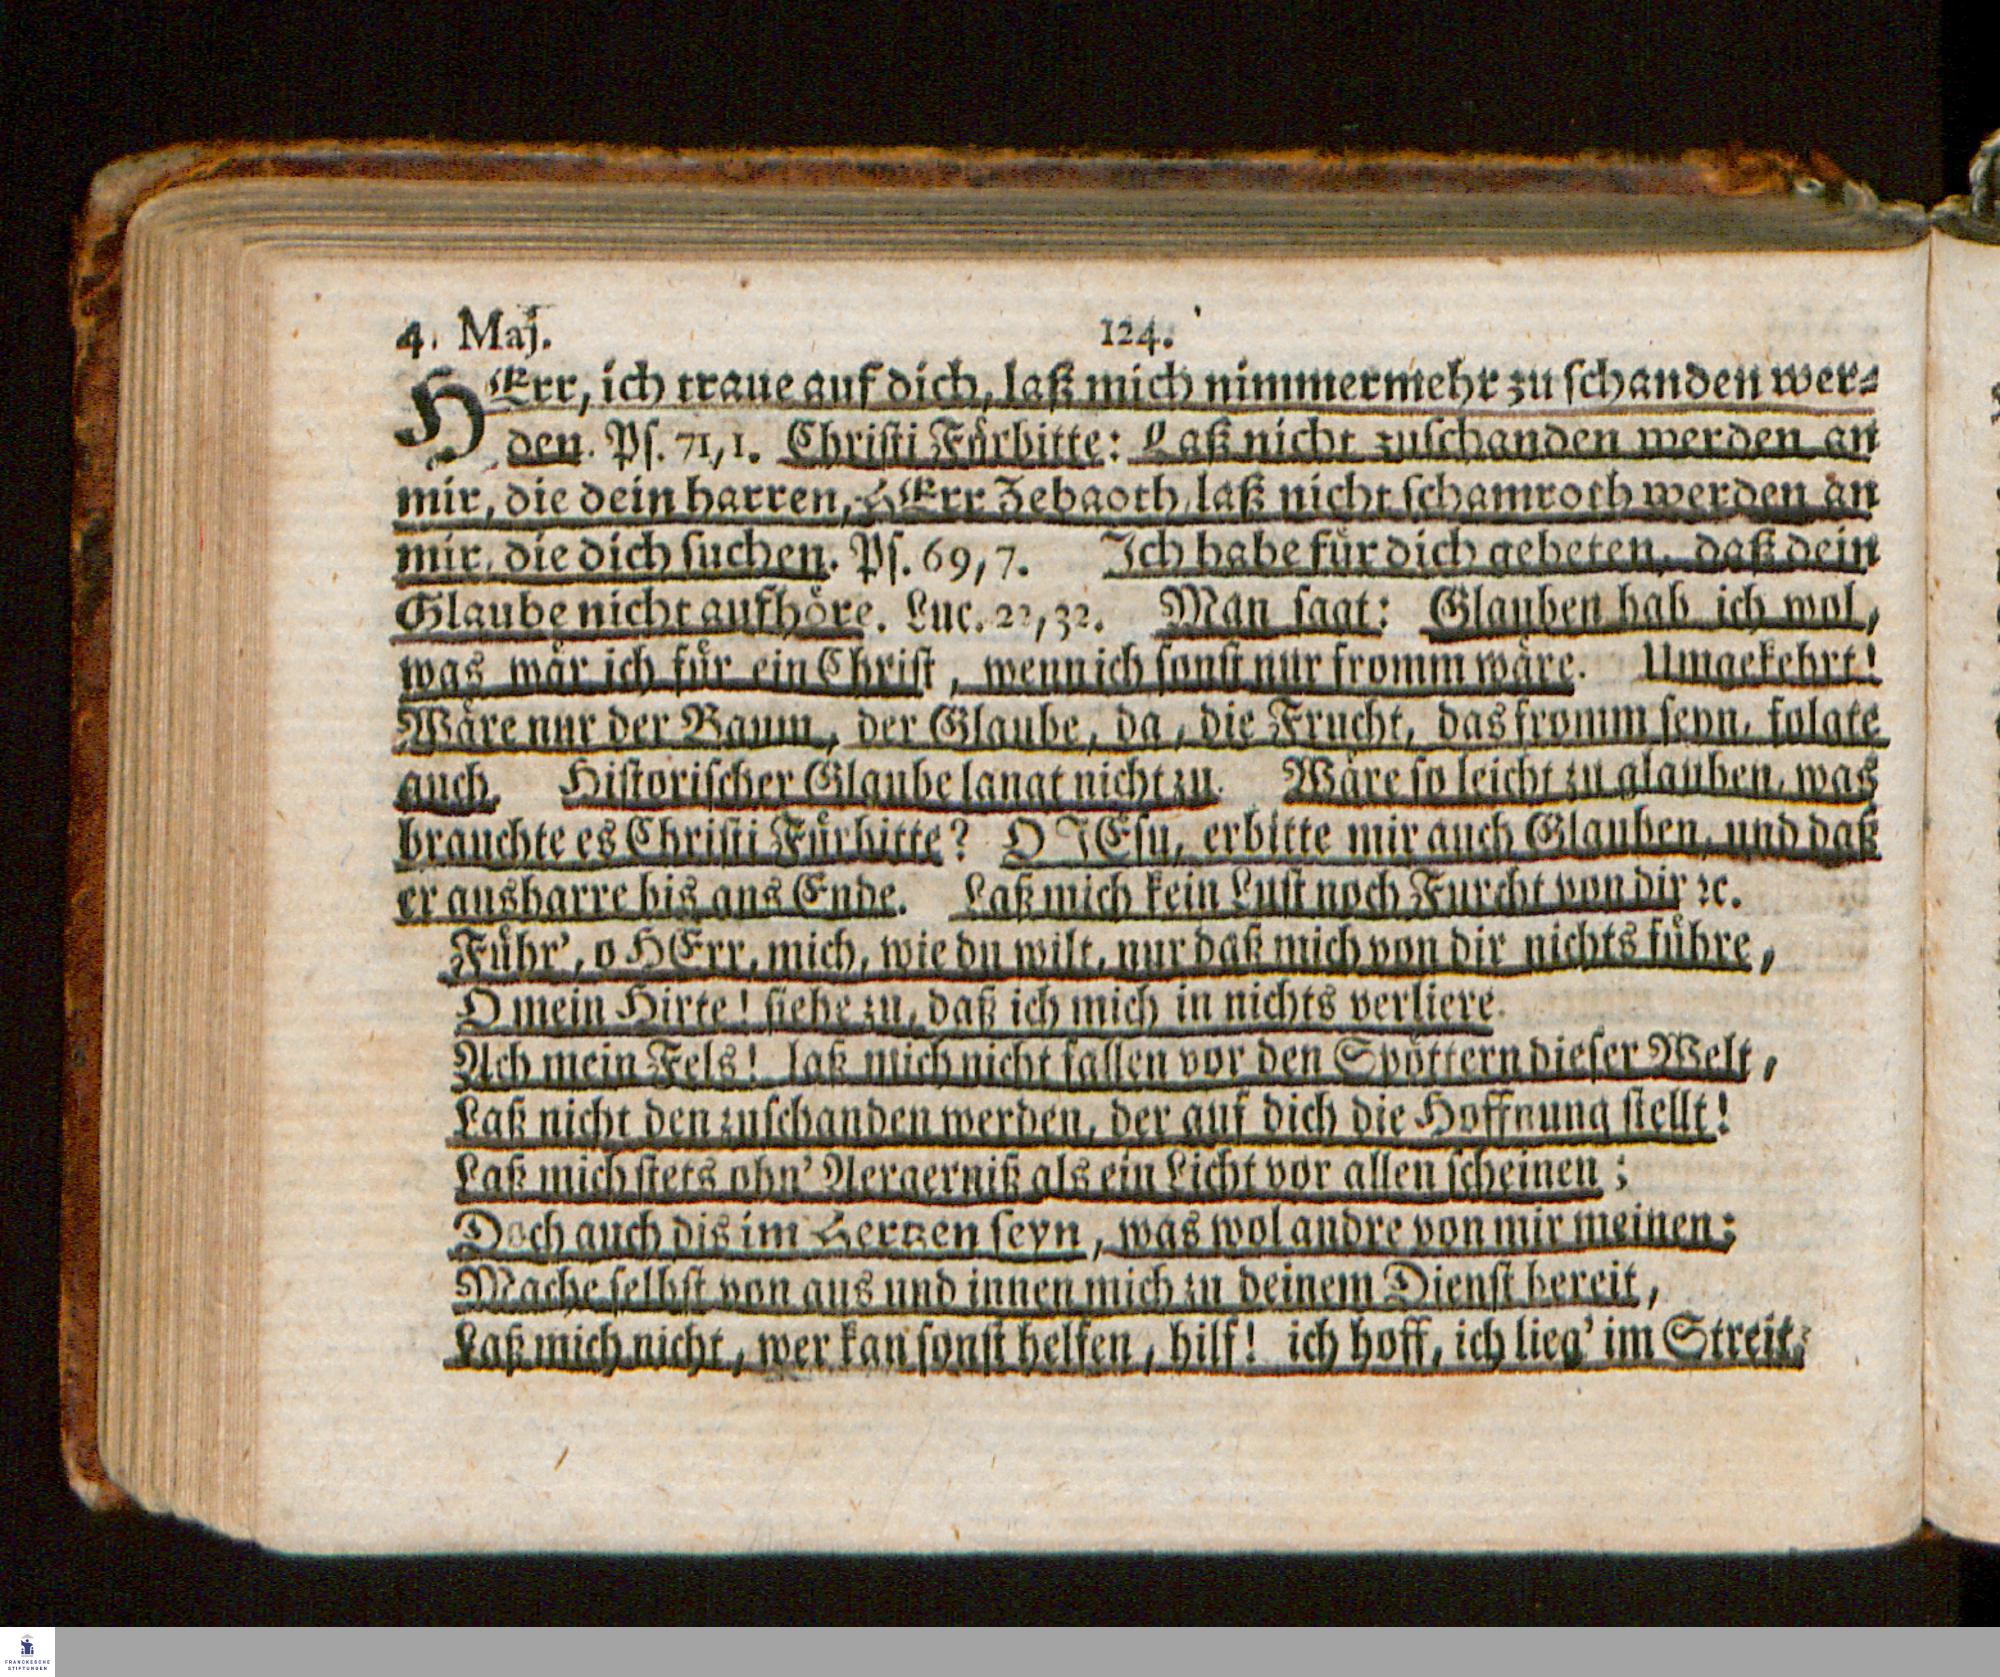 4. Maj. 124.
HErr, ich traue auf dich, laß mich nimmermehr zu schanden wer-
den. Ps. 71, 1. Christi Fürbitte: Laß nicht zuschanden werden an
mir, die dein harren, HErr Zebaoth, laß nicht schamroth werden an
mir, die dich suchen. Ps. 69, 7. Ich habe für dich gebeten, daß dein
Glaube nicht aufhöre. Luc. 22, 32. Man sagt: Glauben hab ich wol,
was wär ich für ein Christ, wenn ich sonst nur fromm wäre. Umgekehrt!
Wäre nur der Baum, der Glaube, da, die Frucht, das fromm seyn, folgte
auch. Historischer Glaube langt nicht zu. Wäre so leicht zu glauben, was
brauchte es Christi Fürbitte? O JEsu, erbitte mir auch Glauben, und daß
er ausharre bis ans Ende. Laß mich kein Lust noch Furcht von dir ꝛc.
Führ', o HErr, mich, wie du wilt, nur daß mich von dir nichts führe,
O mein Hirte! siehe zu, daß ich mich in nichts verliere.
Ach mein Fels! laß mich nicht fallen vor den Spöttern dieser Welt,
Laß nicht den zuschanden werden, der auf dich die Hoffnung stellt!
Laß mich stets ohn' Aergerniß als ein Licht vor allen scheinen;
Doch auch dis im Hertzen seyn, was wol andre von mir meinen;
Mache selbst von aus und innen mich zu deinem Dienst bereit,
Laß mich nicht, wer kan sonst helfen, hilf! ich hoff, ich lieg' im Streit.
FRANCKESCHE
STIFTUNGEN